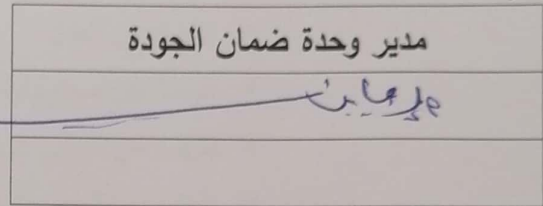 مدير وحدة ضمان الجودة